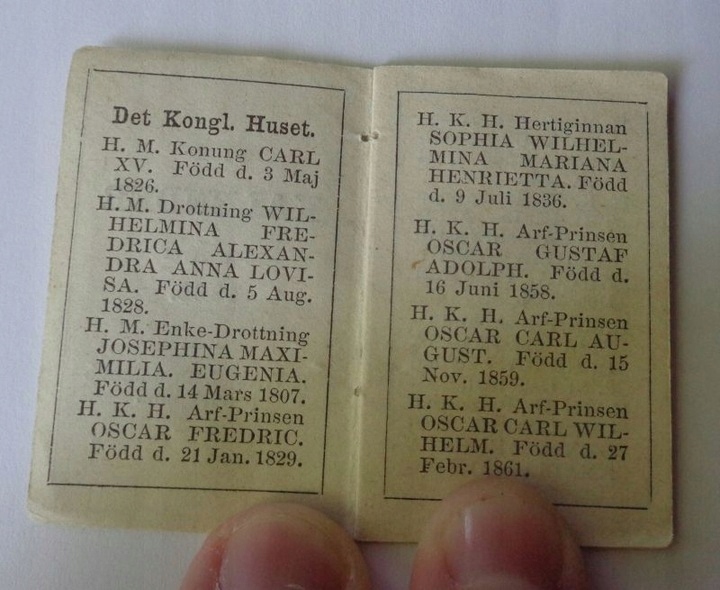 Det Kongl. Huset.
H. M. Konung CARL
XV. Född d. 3 Maj
1826.
H. M. Drottning WIL-
HELMINA FRE-
DRICA ALEXAN-
DRA ANNA LOVI-
SA. Född d. 5 Aug.
1828.
H. M. Enke-Drottning
JOSEPHINA MAXI-
MILIA. EUGENIA.
Född d. 14 Mars 1807.
H. K. H. Arf-Prinsen
OSCAR FREDRIC.
Född d. 21 Jan. 1829.
H. K. H. Hertiginnan
SOPHIA WILHEL-
MINA MARIANA
HENRIETTA. Född
d. 9 Juli 1836.
H. K. H. Arf-Prinsen
OSCAR GUSTAF
ADOLPH. Född d.
16 Juni 1858.
H. K. H. Arf-Prinsen
OSCAR CARL AU-
GUST. Född d. 15
Nov. 1859.
H. K. H. Arf-Prinsen
OSCAR CARL WIL-
HELM. Född d. 27
Febr. 1861.